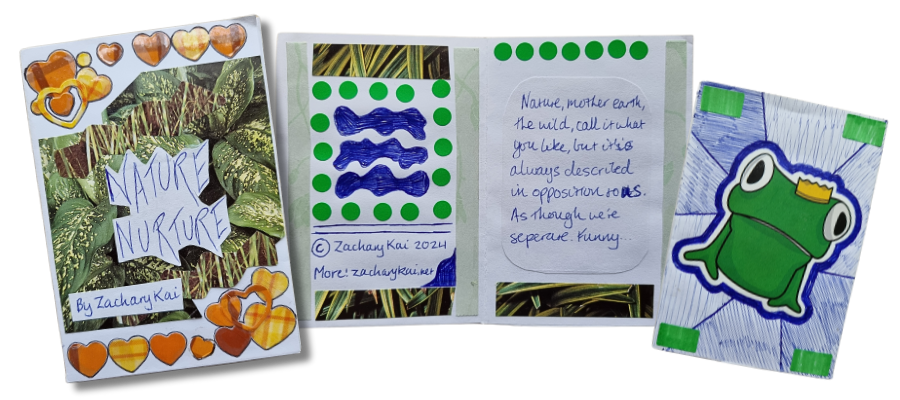 NATURE
NURTURE
By Zachary Kai
© Zachary Kai 2024
More: zacharykai.net
Nature, mother earth,
the wild, call it what
you like, but it's
always described
in opposition to us.
As though we're
seperate. Funny...